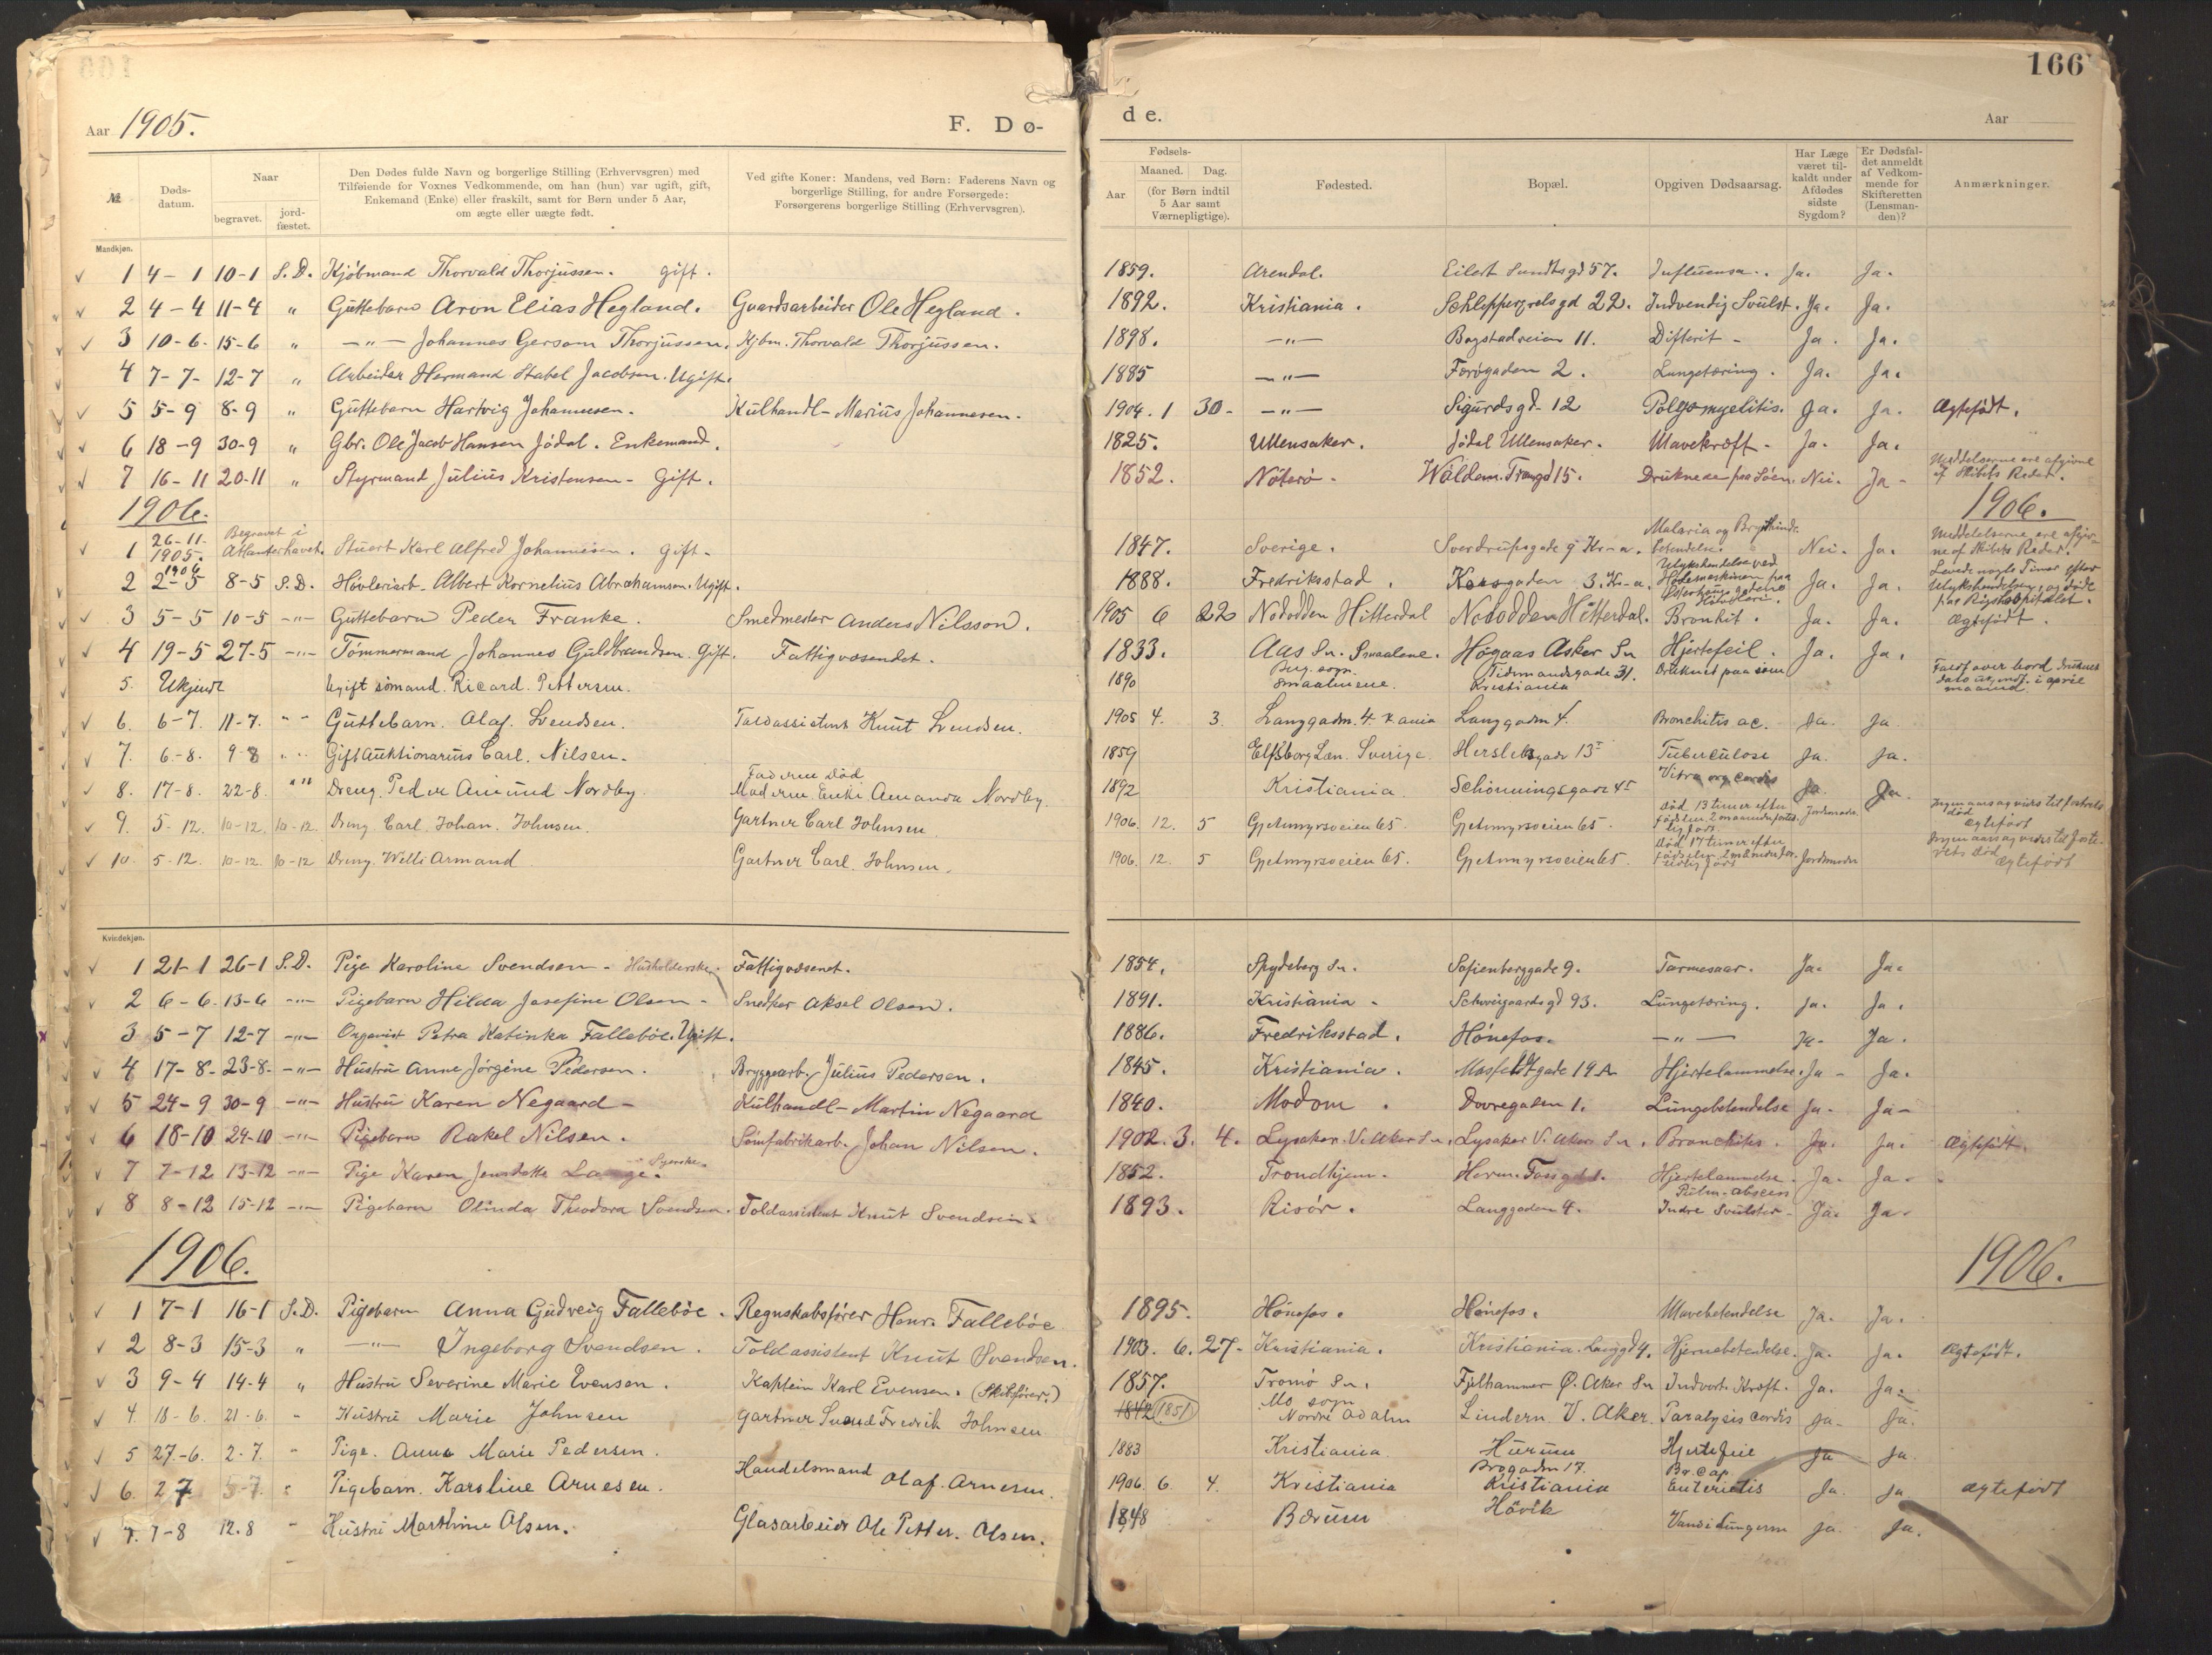 166
Aar 1905. F. Dø-
de. Aar
№ Døds-datum. Naar begravet. jord-fæstet. Den Dødes fulde Navn og borgerlige Stilling (Erhvervsgren) med Tilføiende for Voxnes Vedkommende, om han (hun) var ugift, gift, Enkemand (Enke) eller fraskilt, samt for Børn under 5 Aar, om ægte eller uægte født. Ved gifte Koner: Mandens, ved Børn: Faderens Navn og borgerlige Stilling, for andre Forsørgede: Forsørgerens borgerlige Stilling (Erhvervsgren).
Fødsels- Aar Maaned. Dag. (for Børn indtil 5 Aar samt Værnepligtige). Fødested. Bopæl. Opgiven Dødsaarsag. Har Læge været til-kaldt under Afdødes sidste Sygdom? Er Dødsfal-det anmeldt af Vedkom-mende for Skifteretten (Lensman-den)? Anmærkninger.
Mandkjøn.
1 4-1 10-1 S.D. Kjöbmand Thorvald Thorjussen. gift. 1859. Arendal. Eilert Sundtsgd 57. Influensa. Ja. Ja.
2 4-4 11-4 " Guttebarn Aron Elias Hegland. Gaardsarbeider Ole Hegland. 1892. Kristiania. Schleppegrelsgd 22. Indvendig Svulst. Ja. Ja.
3 10-6. 15-6 " -"- Johannes Gersom Thorjussen. Kjbm. Thorvald Thorjussen. 1898. -"- Bogstadveien 11. Difterit - Ja. Ja.
4 7-7- 12-7 " Arbeider Hermand Stabel Jacobsen. Ugift. 1885 -"- Forøgaden 2. Lungetæring. Ja. Ja.
5 5-9 8-9 " Guttebarn Hartvig Johannesen. Kulhandl- Marius Johannesen. 1904. 1 30- -"- Sigurdsgd- 12 Polyomyelitis. Ja. Ja. Ægtefödt.
6 18-9 30-9 " Gbr. Ole Jacob Hansen Jödal. Enkemand. 1825. Ullensaker. Jödal Ullensaker. Mavekræft - Ja. Ja.
7 16-11 20-11 " Styrmand Julius Kristensen - Gift. 1852. Nöterö - Waldem. Transgd 15. Druknede paa Söen. Nei. Ja - Meddelserne ere afgivne af Skibets Reder.
1906. 1906.
1 26-11. 1905. Begravet i Atlanterhavet. Stuert Karl Alfred Johannesen. gift - 1847. Sverige. Sverdrupsgade 9 Kr-a. Malaria og Brysthinde-betendelse. Nei. Ja. Meddelelserne ere afgiv-ne af Skibets Reder.
2 1906 2-5 8-5 S.D. Hövleriarb- Albert Kornelius Abrahamsen. Ugift. 1888. Fredriksstad. Korsgaden 3. Kr-a. Ulykshendelse ved Hövlemaskinen paa Hövleri. Ja. Ja. Levede nogle Timer efter Ulykshendelsen, og döde paa Rigshospitalet.
3 5-5 10-5 -"- Guttebarn Peder Franke. Smedmester Anders Nilsson. 1905 6 22 Nododden Hitterdal Nododden Hitterdal. Bronkit. Ja. Ja. Ægtefödt.
4 19-5 27-5 -"- Tömmermand Johannes Guldbrandsen. Gift. Fattigvæsendet. 1833. Aas Sn. Smaalene. Högaas Asker Sn Hjertefeil. Ja. Ja.
5. Ukjendt Ugift sömand. Ricard. Pettersen. 1890 sogn Smaalenene. Tidemandsgade 31. Kristiania Druknet paa söen Faldt over bord druknet dato i april maaned.
6. 6-7. 11-7. " " Guttebarn. Olaf. Svendsen. Toldassistent Knut Svendsen. 1905 4. 3. Langgadn. 4. K ania Langgadn 4. Bronchitis ac. Ja. Ja
7. 6-8. 9-8 " " Gift Auktionarius Carl. Nilsen. 1859 Elfsborg Len. Sverige Herslebsgade 13 I Tuberculose Ja. Ja.
8. 17-8. 22-8. " " Dreng. Peder Amund Nordby. Faderen död Moderen Enke Amanda Nordby. 1892 Kristiania Schönningsgade 4 I Vitra org cordis Ja. Ja.
9. 5-12. 10-12. 10-12. Dreng Carl. Johan. Johnsen. Gartner Carl Johnsen. 1906. 12. 5 Gjetemyrsveien 65. Gjetemyrsveien 65. död 13 timer efter födslen. 2 maaneder fortid-lig födt. Jordmoder. Ingen aarsag vides til fostrets död Ægtefödt
10. 5-12. 10-12. 10-12 Dreng. Willi Armand Gartner Carl. Johnsen. 1906. 12. 5 Gjetemyrsveien 65. Gjetemyrsveien 65. död 17 timer efter födselen. 2 maaneder for-tidlig födt Jordmoder Ingen aarsag vides til foste-rets död Ægtefödt
Kvindekjøn.
1 21-1 26-1 S.D. Pige Karoline Svendsen - Husholderske. Fattigvæsenet. 1854. Spydeberg Sn. Sofienberggade 9. Tarmesaar. Ja. Ja.
2 6-6. 13-6 -"- Pigebarn Hilda Josefine Olsen - Snedker Aksel Olsen. 1891. Kristiania - Schweigaardsgd 93. Lungetæring. Ja. Ja.
3 5-7 12-7 -"- Organist Petra Katinka Falleböe. Ugift. 1886. Fredriksstad. Hönefos. -"- Ja. Ja.
4 17-8. 23-8. -"- Hustru Anne Jörgine Pedersen. Bryggearb. Julius Pedersen. 1845. Kristiania. Mosfeldtgade 19A Hjertelammelse. Ja - Ja.
5 24-9 30-9 -"- Hustru Karen Negaard - Kulhandl- Martin Negaard 1840. Modom. Dovregaden 1. Lungebetendelse Ja. Ja-
6 18-10 24-10 -"- Pigebarn Rakel Nilsen. Sömfabrikarb. Johan Nilsen. 1902. 3. 4. Lysaker V. Aker Sn. Lysaker V. Aker Sn. Bronchites. Ja. Ja. Ægtefödt.
7 7-12 13-12 -"- Pige Karen Jensdatte Lange. Syerske. 1852. Trondhjem. Herm. Fossgd 1. Hjertelammelse. Ja. Ja.
8 8-12 15-12 -"- Pigebarn Olinda Theodora Svendsen. Toldassistent Knut Svendsen. 1893. Risör. Langgaden 4. Pulm-abscess Indre Svulster - Ja. Ja.
1906. 1906.
1 7-1 16-1 S.D. Pigebarn Anna Gudveig Falleböe. Regnskabsförer Henr. Falleböe 1895. Hönefos. Hönefos. Mavebetendelse Ja. Ja.
2 8-3 15-3 " -"- Ingeborg Svendsen. Toldassistent Knut Svendsen. 1903. 6. 27- Kristiania. Kristiania. Langgd 4. Hjernebetendelse. Ja. Ja. Ægtefödt.
3 9-4 14-4 " Hustru Severine Marie Evensen. Kaptein Karl Evensen. (Skibsförer.) 1857. Tromö Sn. Fjelhammer Ø. Aker Sn Indvort. Kræft. Ja. Ja.
4. 18-6. 21-6. " Hustru Marie Johnsen Gartner Svend Fredrik Johnsen 1842 (1851) Mo sogn Nordre Odalen Lindern V. Aker. Paralysis cordis Ja. Ja.
5 27-6. 2-7. " Pige. Anna Marie Pedersen. 1883 Kristiania. Hurum Hjertefeil Ja Ja.
6. 27 5-7. " Pigebarn. Karoline Arnesen. Handelsmand Olaf. Arnesen. 1906. 6. 4. Kristiania Brogaden 17. Kristiania Br. cap. Enterietis Ja. Ja ægtefödt
7. 7-8 12.8 " Hustru Marthine Olsen. Glasarbeider Ole Petter. Olsen. 1848 Bærum Hövik Vand i Lungerne Ja. Ja.